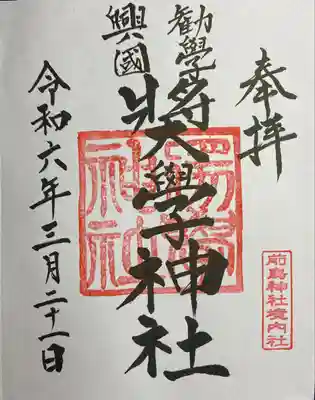 奉拝
勸學
興國
奬學神社
前鳥神社境内社
令和六年三月二十一日